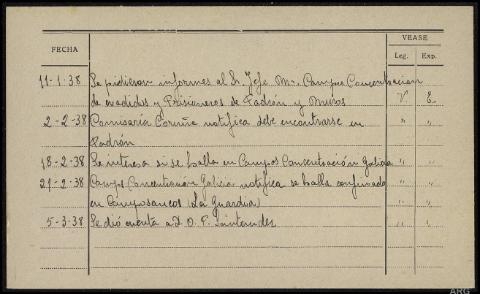 VEASE
FECHA
Leg. Exp.
11-1-38 Se pidieron informes al Sr. Jefe Mr. Campos Concentracion
de evadidos y Prisioneros de Padrón y Muros V E
2-2-38 Comisaría Coruña notifica debe encontrarse en " "
Padrón
18-2-38 Se interesa si se halla en Campos Concentración Galicia " "
21-2-38 Campos Concentración Galicia notifica se halla confinado " "
en Camposancos (La Guardia)
5-3-38 Se dió cuenta a D. O. P. " "
ARG